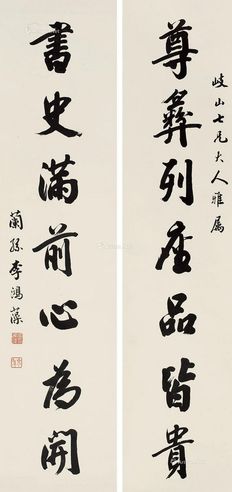 岐山七兄大人雅属
尊彝列座品皆贵
書史滿前心為開
蘭孫李鴻藻